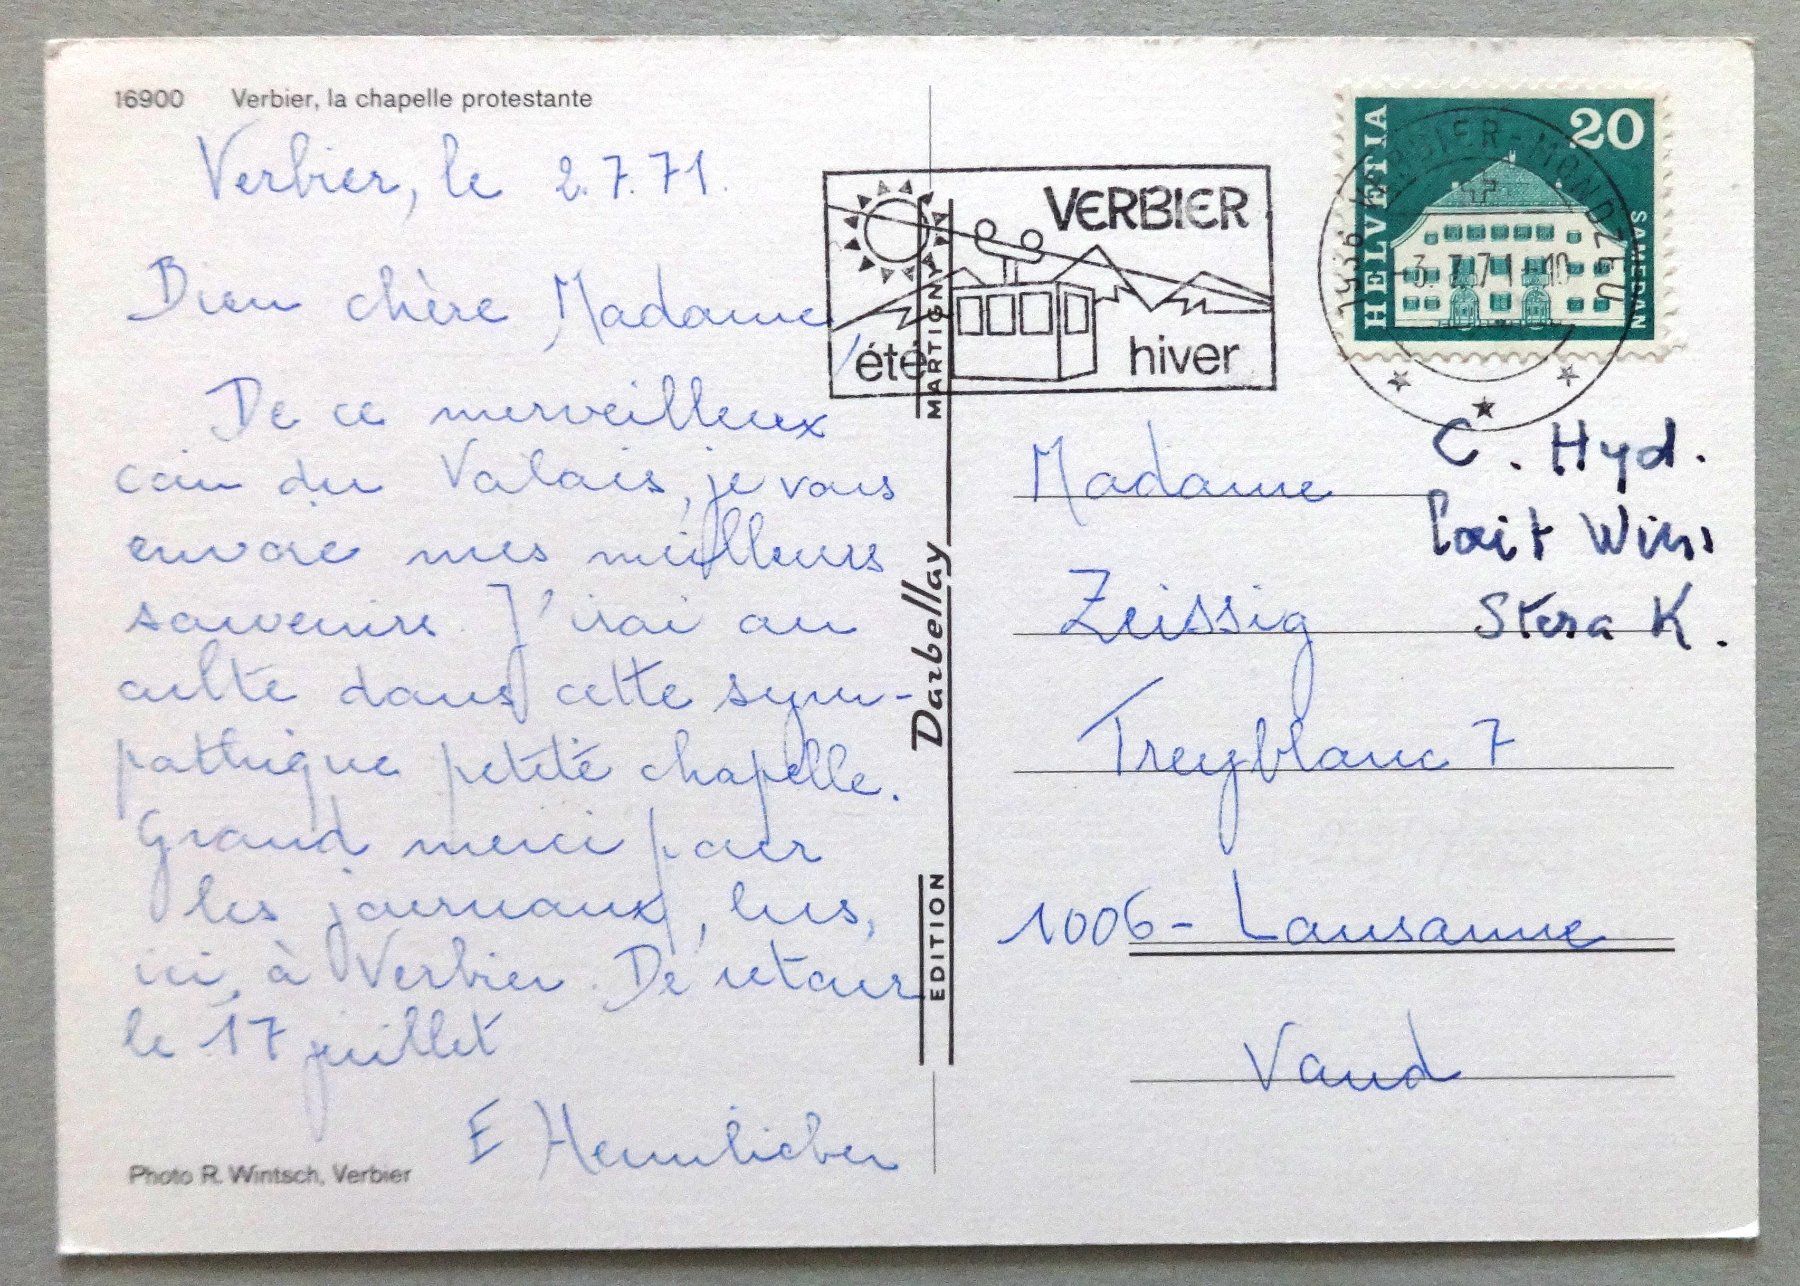 16900 Verbier, la chapelle protestante
Verbier, le 2.7.71.
Bien chère Madame,
De ce merveilleux
coin du Valais, je vous
envoie mes meilleurs
souvenirs. J'irai au
culte dans cette sym-
pathique petite chapelle.
Grand merci pour
les journaux, lus,
ici, à Verbier. De retour
le 17 juillet
E
Photo R. Wintsch, Verbier
EDITION Darbellay MARTIGNY
VERBIER
été
hiver
HELVETIA
20
SAMEDAN
1936 VERBIER-MONDZEU
-3.7.71-10
C. Hyd.
Lait
K.
Madame
Zeissig
Treyblanc 7
1006 - Lausanne
Vaud